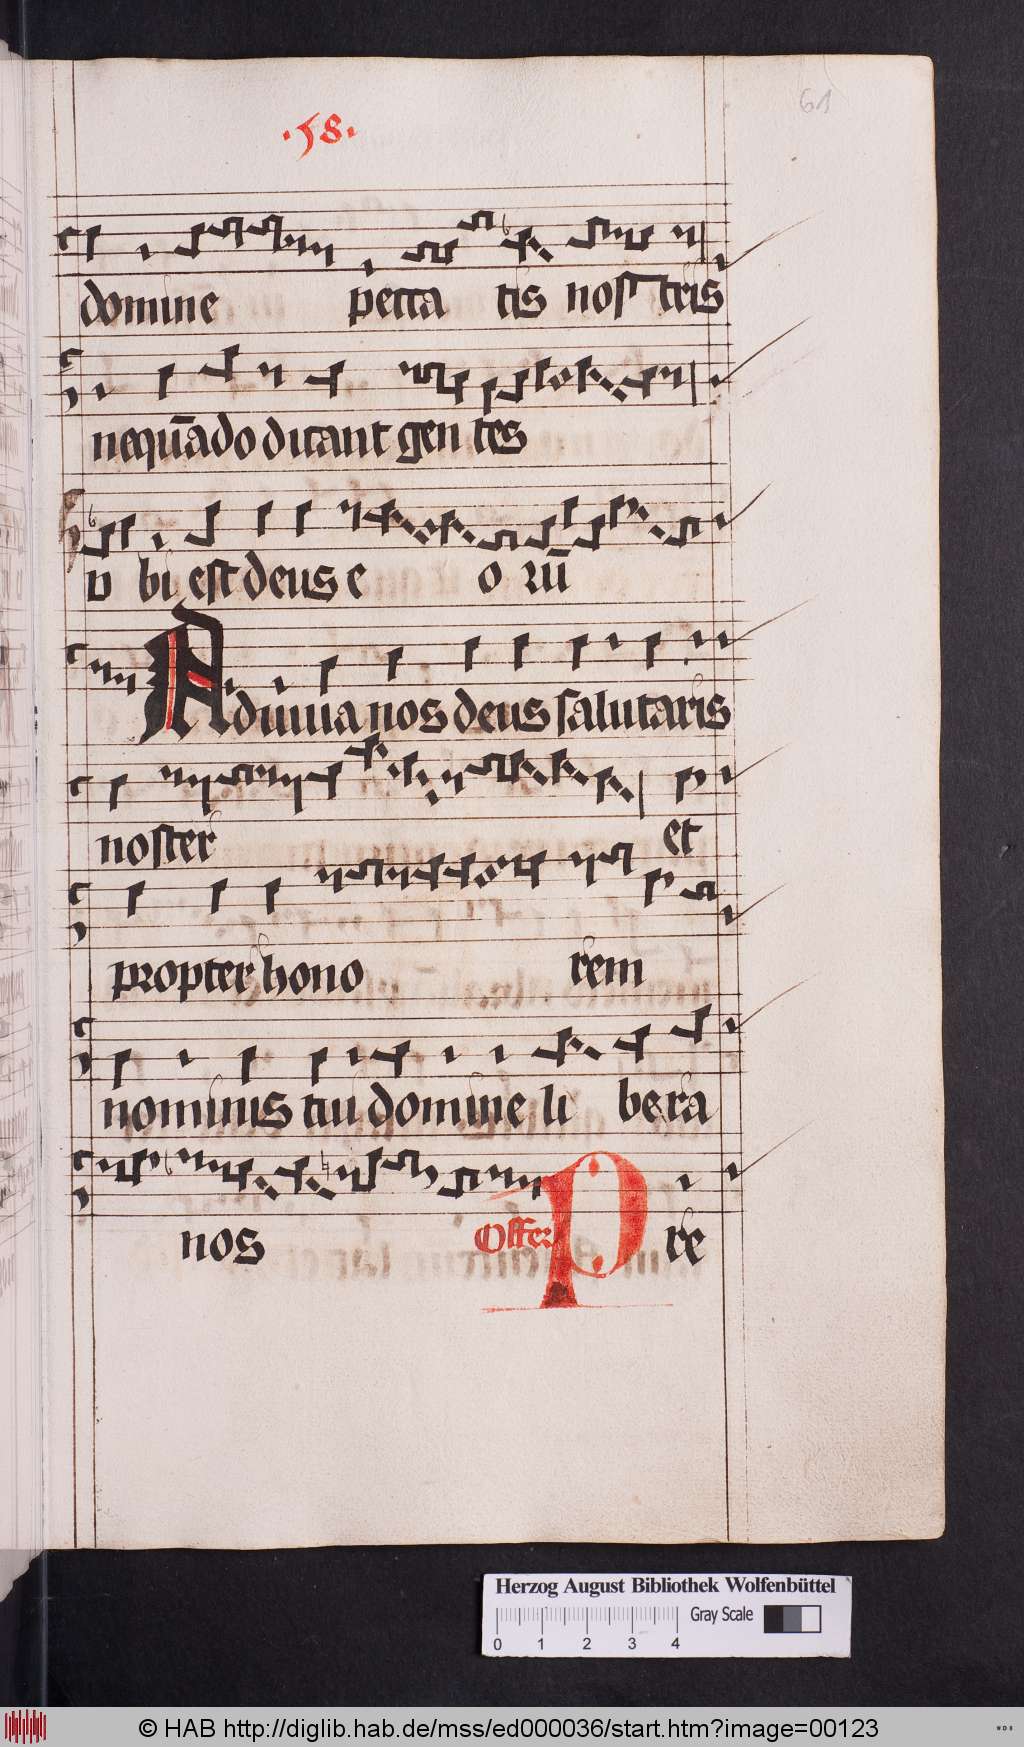 61
.58.
domine pecca tis nostris
nequādo dicant gen tes
v bi est deus e o rū
Adiuua nos deus salutaris
noster et
propter hono rem
nominis tui domine li be ra
nos Offer P re
Herzog August Bibliothek Wolfenbüttel
Gray Scale
0 1 2 3 4
© HAB http://diglib.hab.de/mss/ed000036/start.htm?image=00123